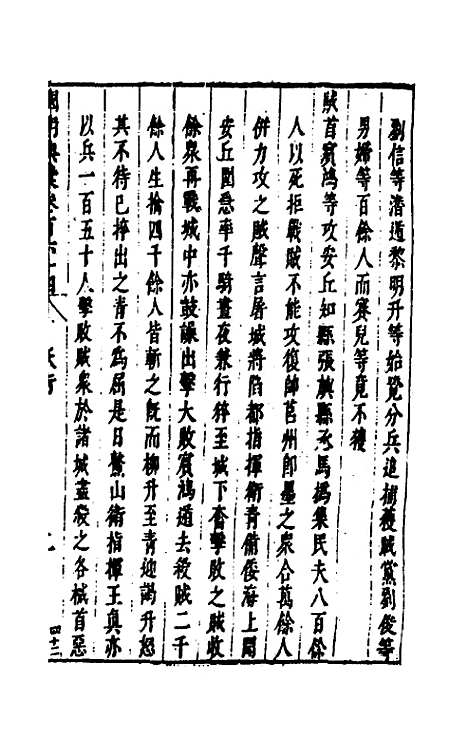 劉信等潛遁黎明升等始覺分兵追捕獲賊黨劉俊等
男婦等百餘人而賽兒等竟不獲
賊首賓鴻等攻安丘知縣張旟縣丞馬撝集民夫八百餘
人以死拒戰賊不能攻復帥莒州即墨之衆合萬餘人
併力攻之賊聲言屠城將陷都指揮衛青備倭海上聞
安丘圍急率千騎晝夜兼行猝至城下奮擊敗之賊收
餘衆再戰城中亦鼓譟出擊大敗賓鴻遁去殺賊二千
餘人生擒四千餘人皆斬之旣而柳升至青迎謁升怒
其不待已捽出之青不爲屈是日鰲山衛指揮王真亦
以兵一百五十人擊敗賊衆於諸城盡殺之各械首惡
四十三